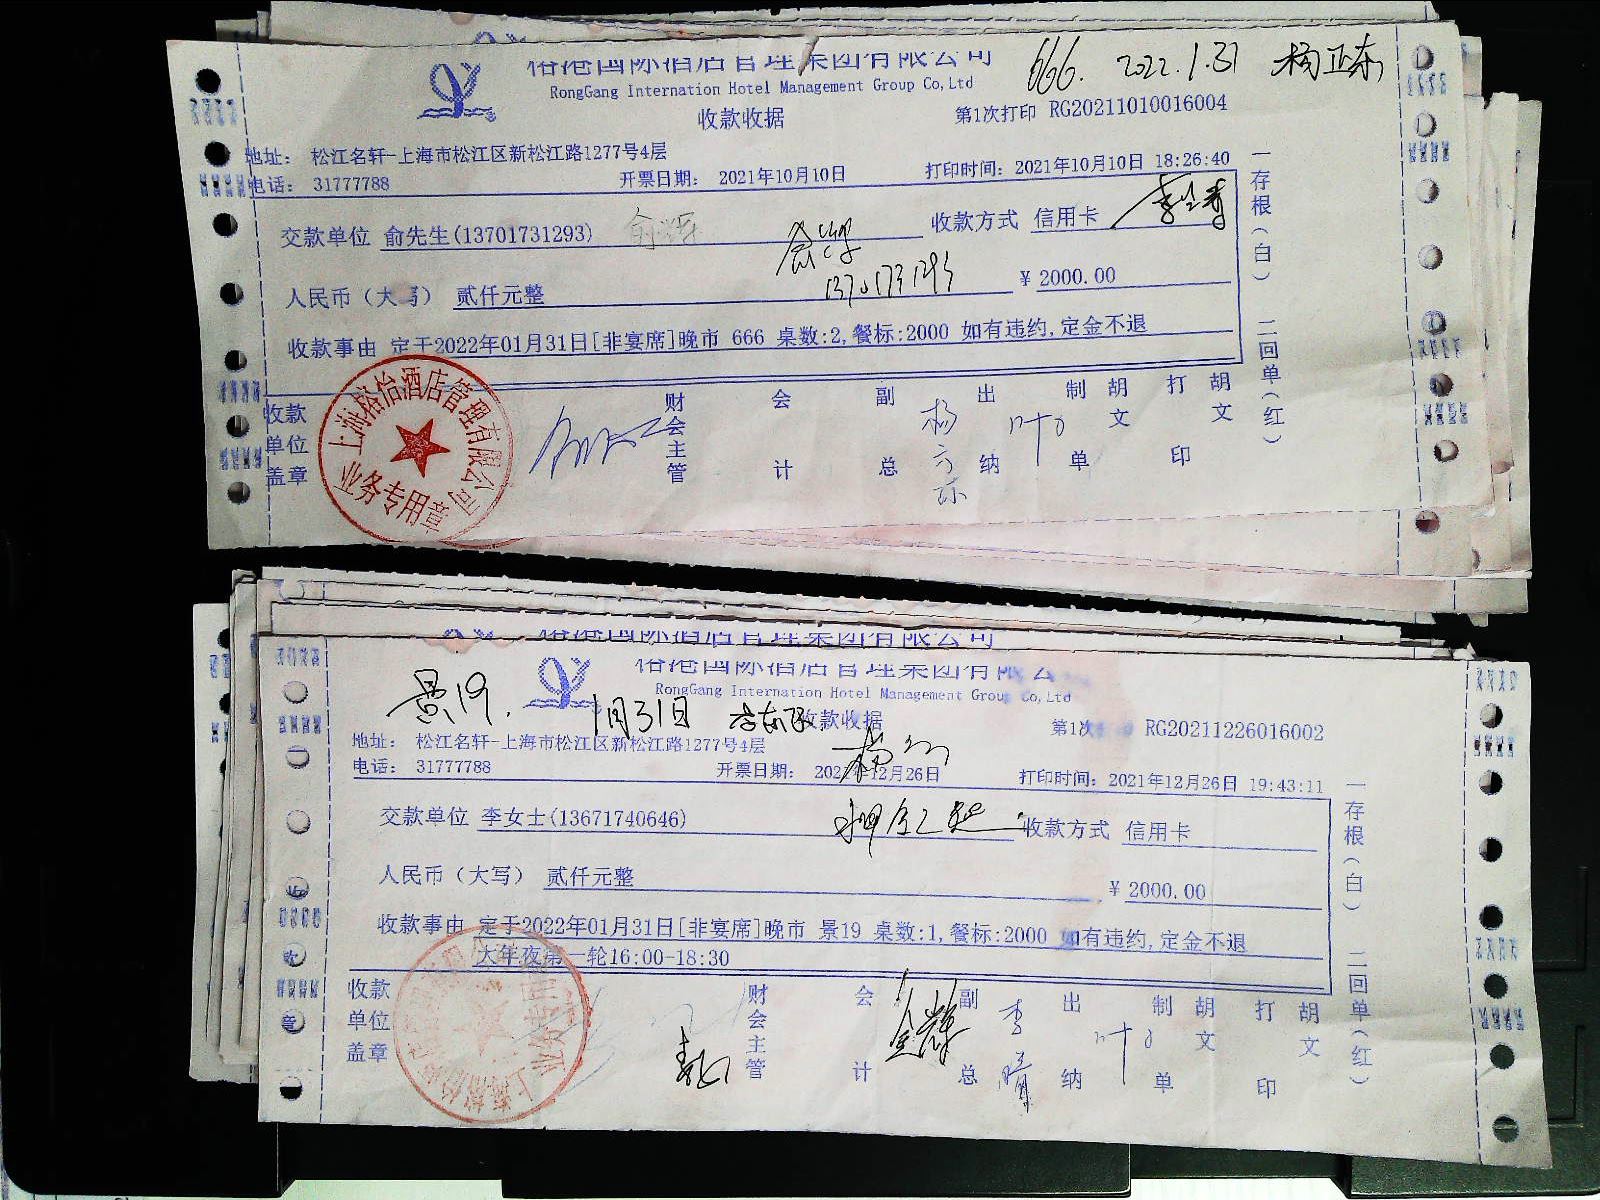 裕港国际酒店管理集团有限公司
666. 2022.1.31
RongGang Internation Hotel Management Group Co,Ltd
收款收据
第1次打印 RG20211010016004
地址: 松江名轩-上海市松江区新松江路1277号4层
电话: 31777788
开票日期: 2021年10月10日
打印时间: 2021年10月10日 18:26:40
交款单位 俞先生(13701731293)
收款方式 信用卡
13701731293
人民币（大写） 贰仟元整
￥2000.00
收款事由 定于2022年01月31日[非宴席]晚市 666 桌数:2,餐标:2000 如有违约,定金不退
一存根(白)
二回单(红)
收款单位盖章
上海裕怡酒店管理有限公司
业务专用章
财会主管
会计
副总
出纳
制单
胡文
打印
胡文
裕港国际酒店管理集团有限公司
裕港国际酒店管理集团有限公
RongGang Internation Hotel Management Group Co,Ltd
景19.
1月31日
收款收据
第1次
RG20211226016002
地址: 松江名轩-上海市松江区新松江路1277号4层
电话: 31777788
开票日期: 2021年12月26日
打印时间: 2021年12月26日 19:43:11
交款单位 李女士(13671740646)
收款方式 信用卡
人民币（大写） 贰仟元整
￥2000.00
收款事由 定于2022年01月31日[非宴席]晚市 景19 桌数:1,餐标:2000 如有违约,定金不退
大年夜第一轮16:00-18:30
一存根(白)
二回单(红)
收款单位盖章
业务专用章
财会主管
会计
副总
李晴
出纳
制单
胡文
打印
胡文